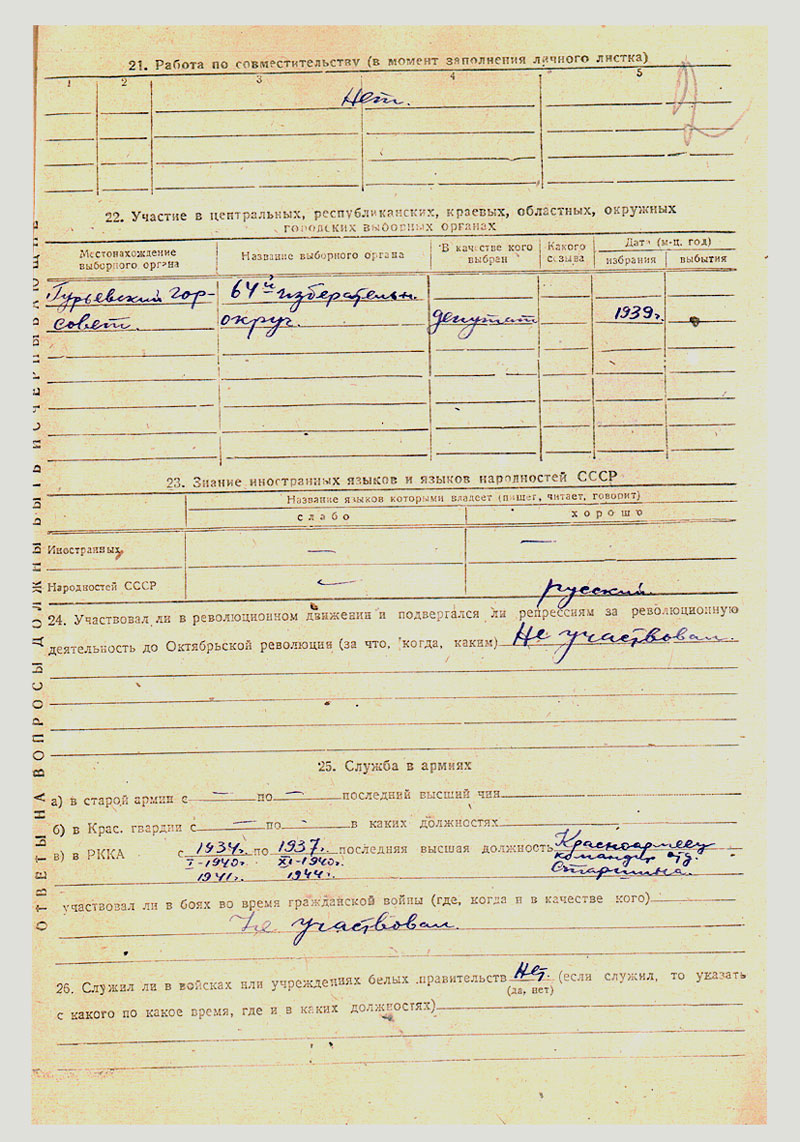 2
21. Работа по совместительству (в момент заполнения личного листка)
1 2 3 4 5
Нет.
22. Участие в центральных, республиканских, краевых, областных, окружных
городских выборных органах
Местонахождение выборного органа
Название выборного органа
В качестве кого выбран
Какого созыва
Дата (м-ц, год)
избрания
выбытия
Гурьевский гор-
совет.
64й избератель­н.
округ.
депутат
1939г.
23. Знание иностранных языков и языков народностей СССР
Название языков которыми владеет (пишет, читает, говорит)
слабо хорошо
Иностранных — —
Народностей СССР — русский
24. Участвовал ли в революционном движении и подвергался ли репрессиям за революционную
деятельность до Октябрьской революции (за что, когда, каким) Не участвовал.
25. Служба в армиях
а) в старой армии с — по — последний высший чин
б) в Крас. гвардии с — по - в каких должностях
в) в РККА с 1934г. по 1937г. последняя высшая должность Красноармеец
I-1940г. XI-1940г. командир отд.
1941г. 1944г. Старшина.
участвовал ли в боях во время гражданской войны (где, когда и в качестве кого)
Не участвовал.
26. Служил ли в войсках или учреждениях белых правительств Нет. (если служил, то указать
(да, нет)
с какого по какое время, где и в каких должностях)
ОТВЕТЫ НА ВОПРОСЫ ДОЛЖНЫ БЫТЬ ИСЧЕРПЫВАЮЩИЕ